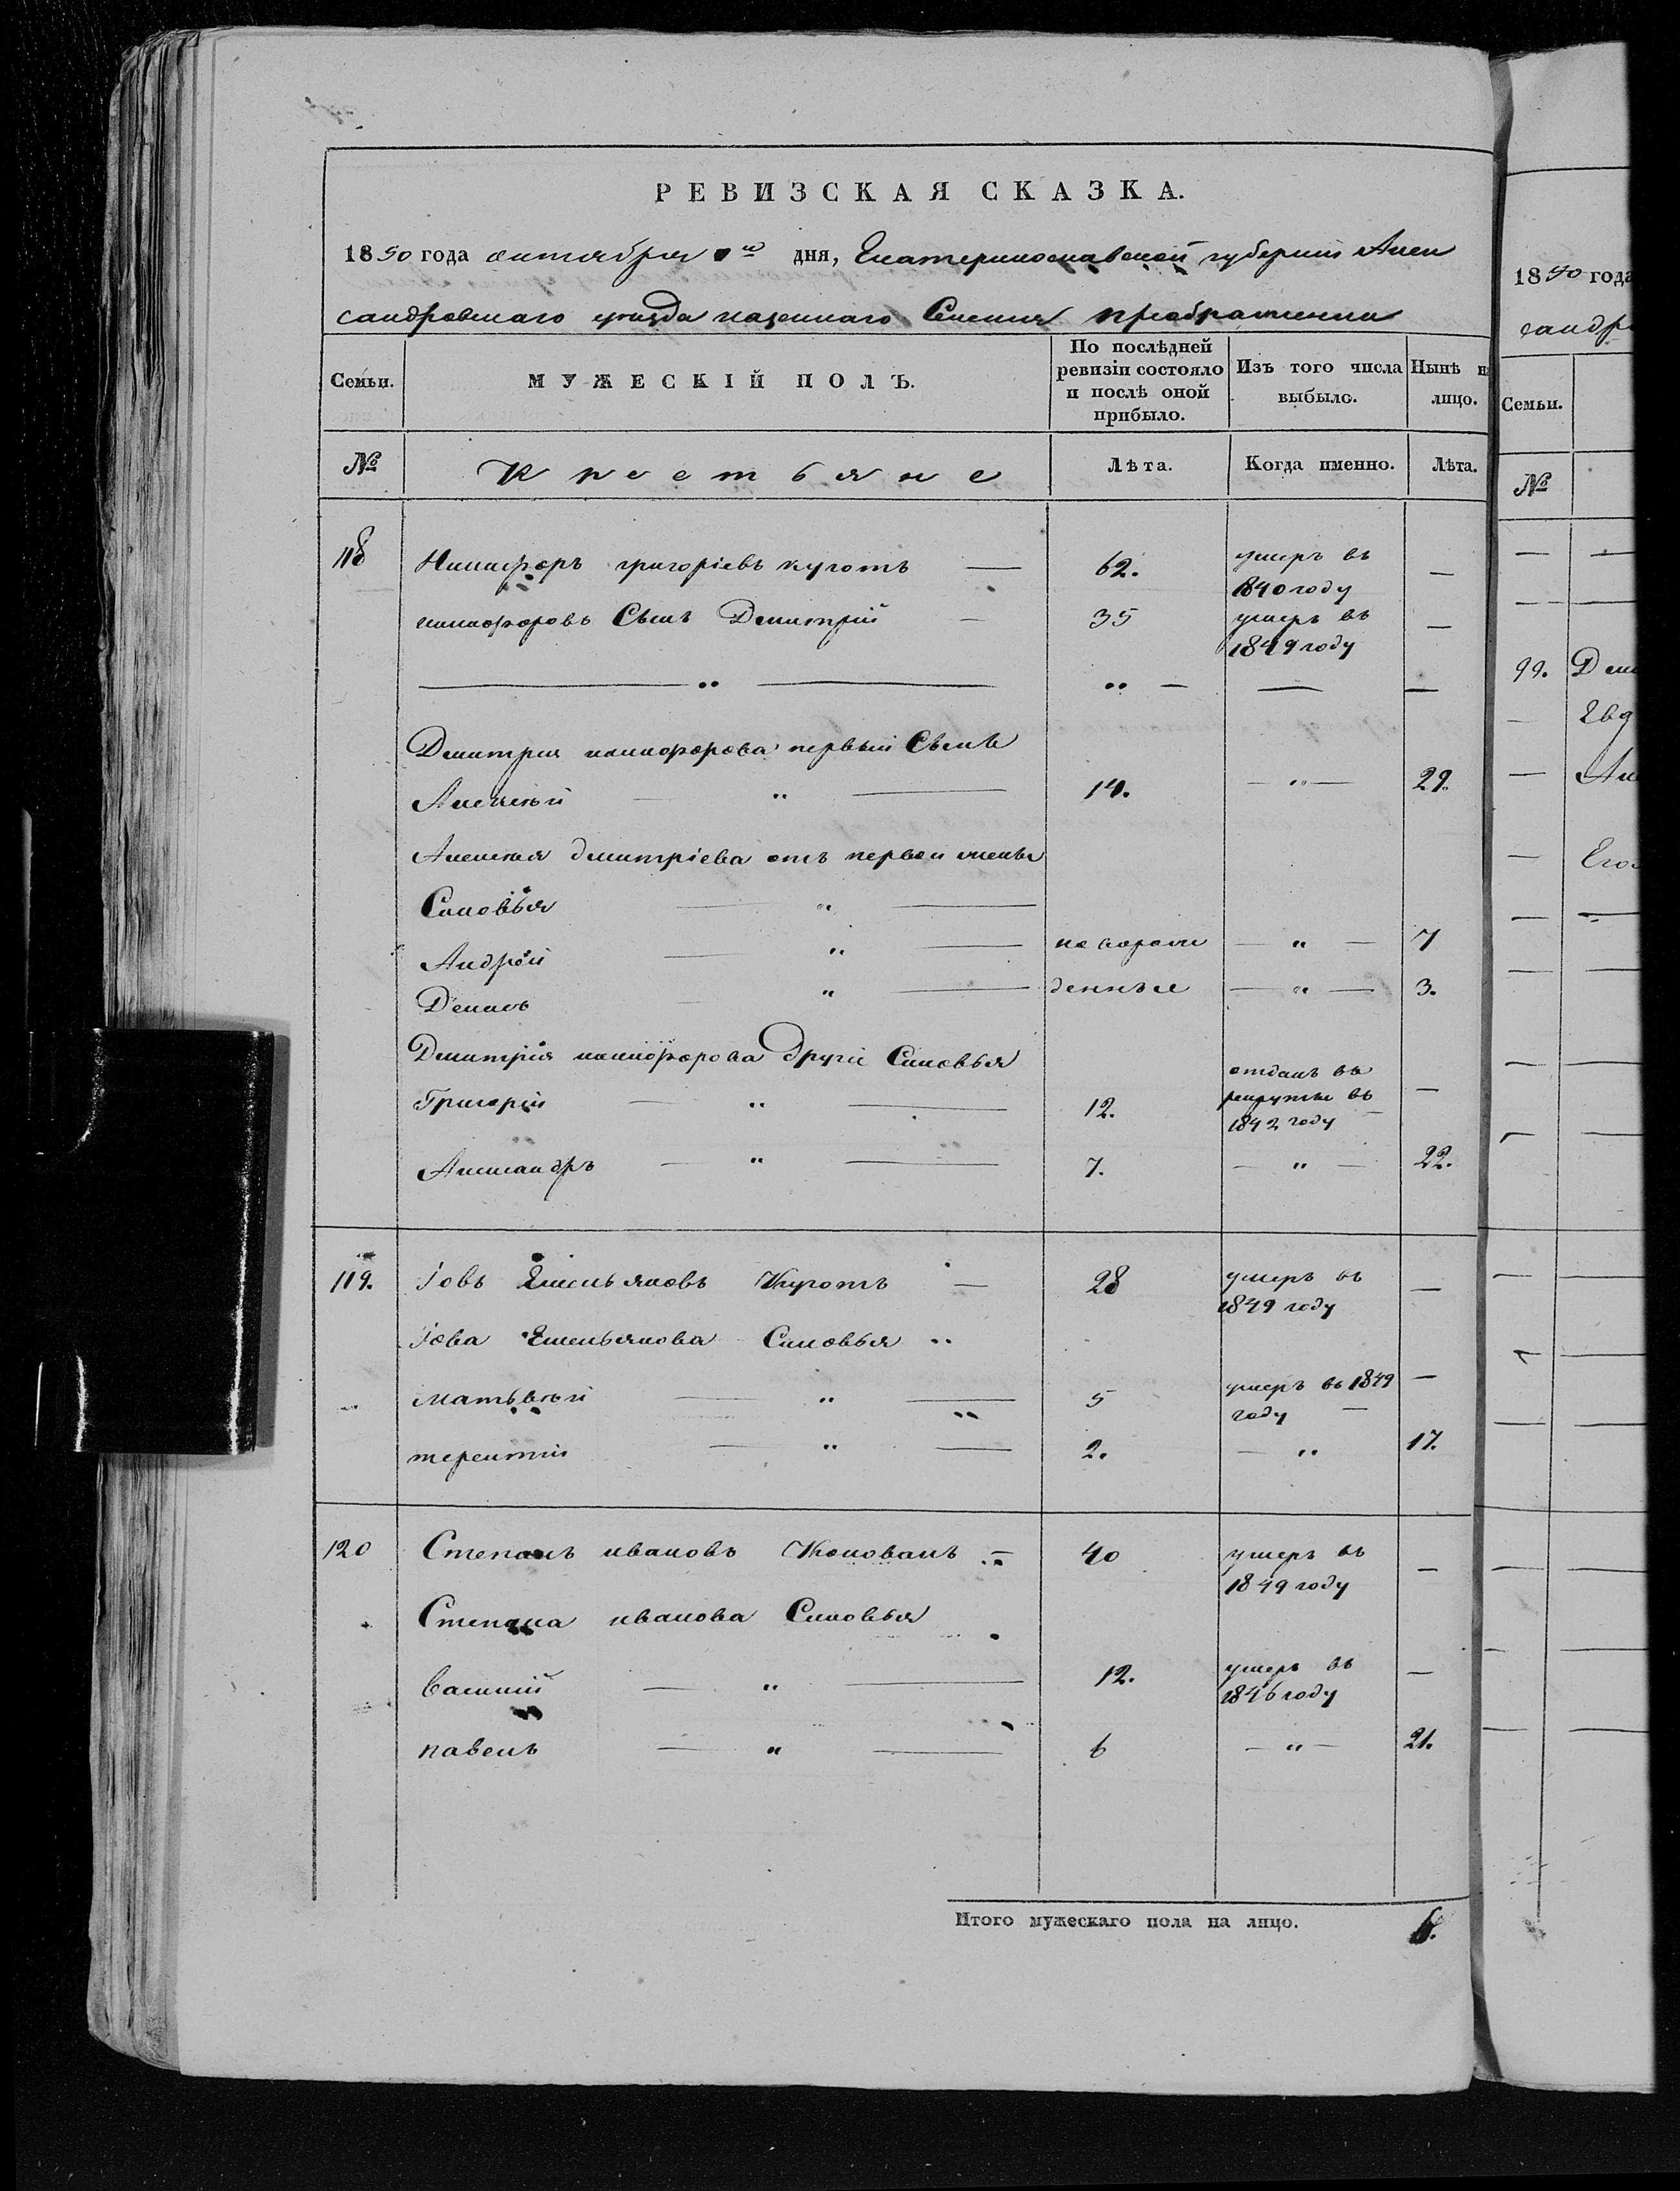 РЕВИЗСКАЯ СКАЗКА.
1850 года октября дня, Екатеринославской губернии Алек
сандровскаго уѣзда казеннаго Селения преображенки
Семьи. МУЖЕСКІЙ ПОЛЪ. По послѣдней ревизіи состояло и послѣ оной прибыло. Изъ того числа выбыло. Нынѣ н лицо.
№ Крестьяне Лѣта. Когда именно. Лѣта.
118 Никифоръ григоріевъ куготъ — 62. умеръ въ 1840 году —
никифоровъ Сынъ Дмитрій — 35 умеръ въ 1849 году —
— „ — „ — — —
Дмитрия никифорова первый Сынъ
Алексѣй — „ — 14. — „ — 29.
Алексѣя дмитріева отъ первой жены
Синовья — „ —
Андрѣй — „ — новорож — „ — 7
Денисъ — „ — денные — „ — 3.
Дмитрія никифорова другіе Синовья
Григорій — „ — 12. отданъ въ рекруты въ 1842 году —
Александръ — „ — 7. — „ — 22.
119. Іовъ Емельяновъ Куготъ — 28 умеръ въ 1849 году —
Іова Емельянова Синовья „
матьвѣй — „ — 5 умеръ въ 1849 году —
терентій — „ — 2. — „ 17.
120 Степанъ ивановъ Коновалъ — 40 умеръ въ 1849 году —
Степана иванова Синовья
василій — „ — 12. умеръ въ 1846 году —
павелъ — „ — 6 — „ — 21.
Итого мужескаго пола на лицо. 6.
1850 года
сандр
Семьи.
№
99. Дми
Евд
Ал
Его